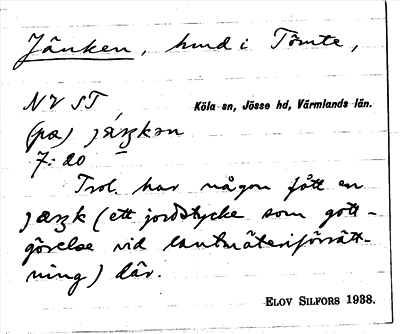 Jänken, hmd i Tömte,
NV ST Köla sn, Jösse hd, Värmlands län.
(pæ)
7:20
Trol. har någon fått en
(ett jordstycke som gott-
görelse vid lantmäteriförrätt-
ning) där.
ELOV SILFORS 1938.